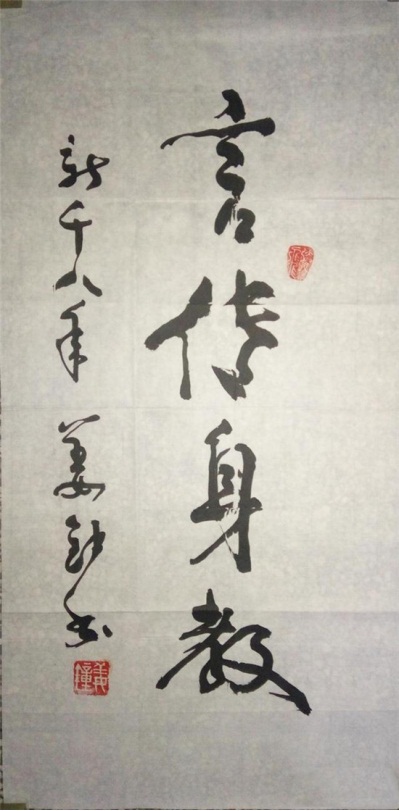 言传身教
新千八年 姜钟书